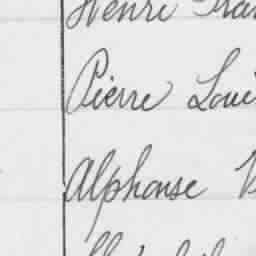 Henri Fran
Pierre Loui
Alphonse